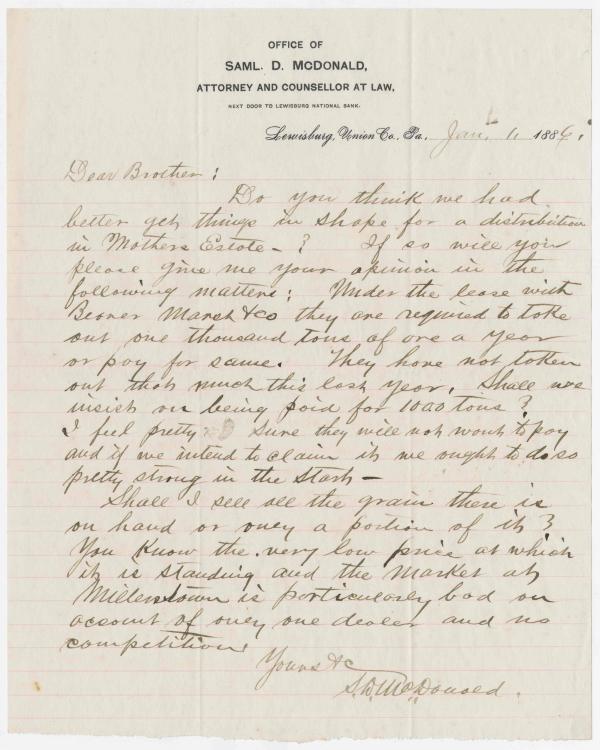 OFFICE OF
SAML. D. McDONALD,
ATTORNEY AND COUNSELLOR AT LAW,
NEXT DOOR TO LEWISBURG NATIONAL BANK.
Lewisburg, Union Co., Pa., Jan. 188
Dear Brother:
Do you think we had
better get things in shape for a distribution
in Mothers Estate - ? If so will you
please give me your opinion in the
following matters: Under the lease with
Marsh &co they are required to take
out one thousand tons of ore a year
or pay for same. They have not taken
out that much this last year. Shall we
insist on being paid for 1000 tons?
I feel pretty sure they will not want to pay
and if we intend to claim it we ought to do so
pretty strong in the start -
Shall I sell all the grain there is
on hand or only a portion of it?
You know the very low price at which
it is standing and the market at
Millerstown is particularly bad on
account of only one dealer and no
competition.
Yours &c
S.D. McDonald.